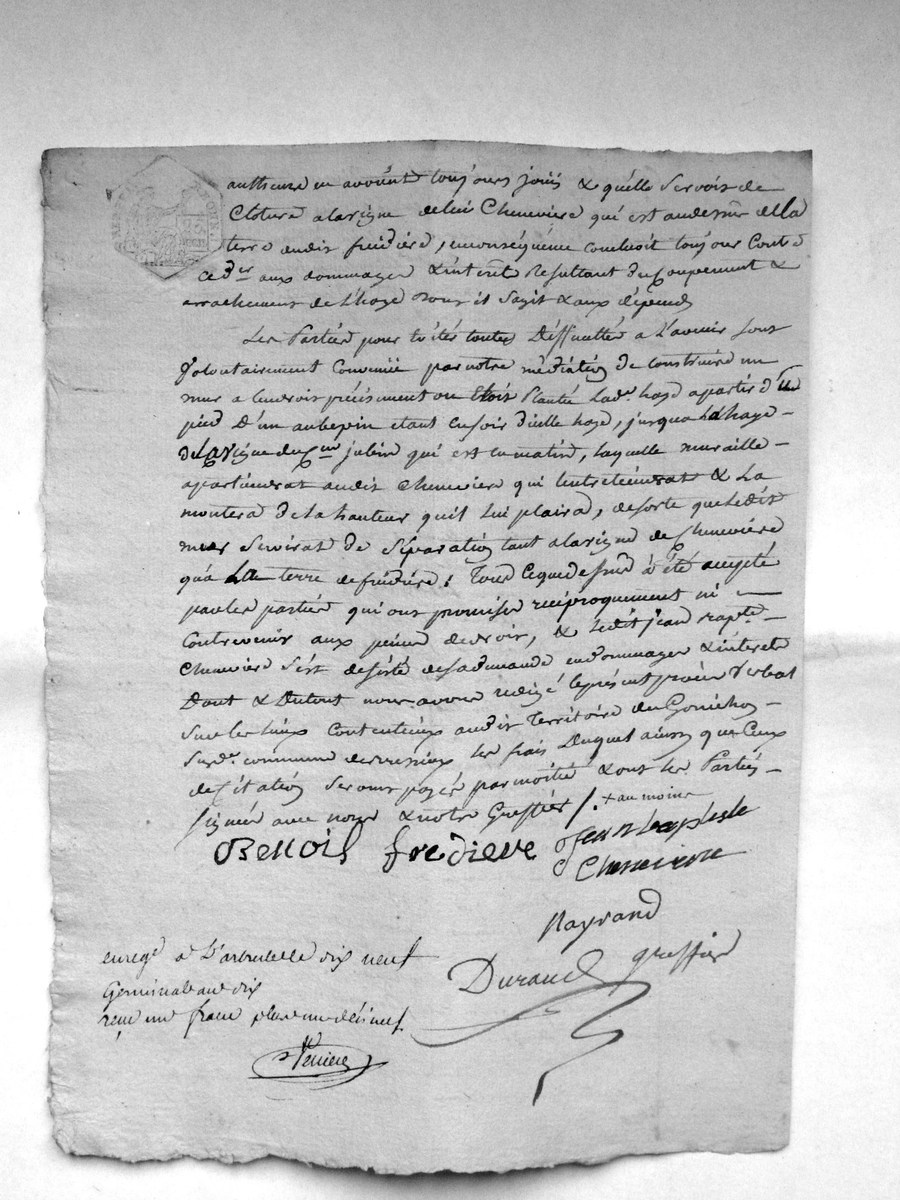 autheurs en avoint toujours jouis & quelle servoit de
Cloture a la vigne de lui Chenevière qui est au dessus de la
terre dudit frédière, en conséquence concluoit toujour contre
ce d.er aux dommages & interêt Resultant du Coupement &
arrachement de L'haye dont il sagit & aux dépends
Les Parties pour évités toutes Difficultté a L'avenir sont
Volontairement Convenue par notre médiation de construire un
mur a lendroit précisément ou Etoit Planté lad.e haye a partir d'u
pied D'un aubepin etant en soir d'icelle haye, jusqua La haye
de La vigne du C.en jubin qui est en matin, laquelle muraille
apartiendrat audit Chenevière qui lentretiendrat & La
montera de la hauteur quil lui plaira, de sorte que ledit
mur servirat de séparation tant a la vigne de Chenevière
qu'a La terre de frédière; Tout ce que dessus à été accepté
par les parties qui ont promise réciproquement ni
Contrevenir aux peines de droit, & ledit jean bapte.
Chenevière s'est désisté de sa demande en dommages & interets
Dont & Dutout nous avons redigé le présent procès Verbal
sur les lieux Contentieux audit Territoire du
susd.e commune de les frais Duquel ainsy que Ceux
de Citation seront payés par moitié & ont les Parties
signée avec nous & notre Greffier /. + au moins
Benoit fredieve Jean baptiste
Chenevierre
Raynand
Durand greffier
enregé a L'arbrelle dix neuf
Germinal an dix
reçu un franc plus un déci neuf.